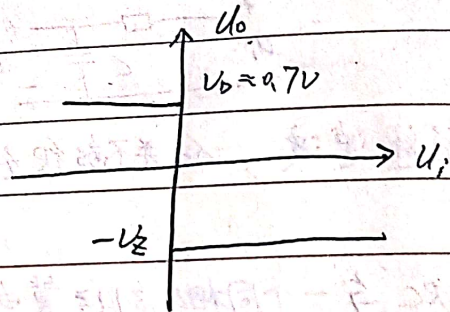 Uo
VD≈0.7V
Ui
-VZ